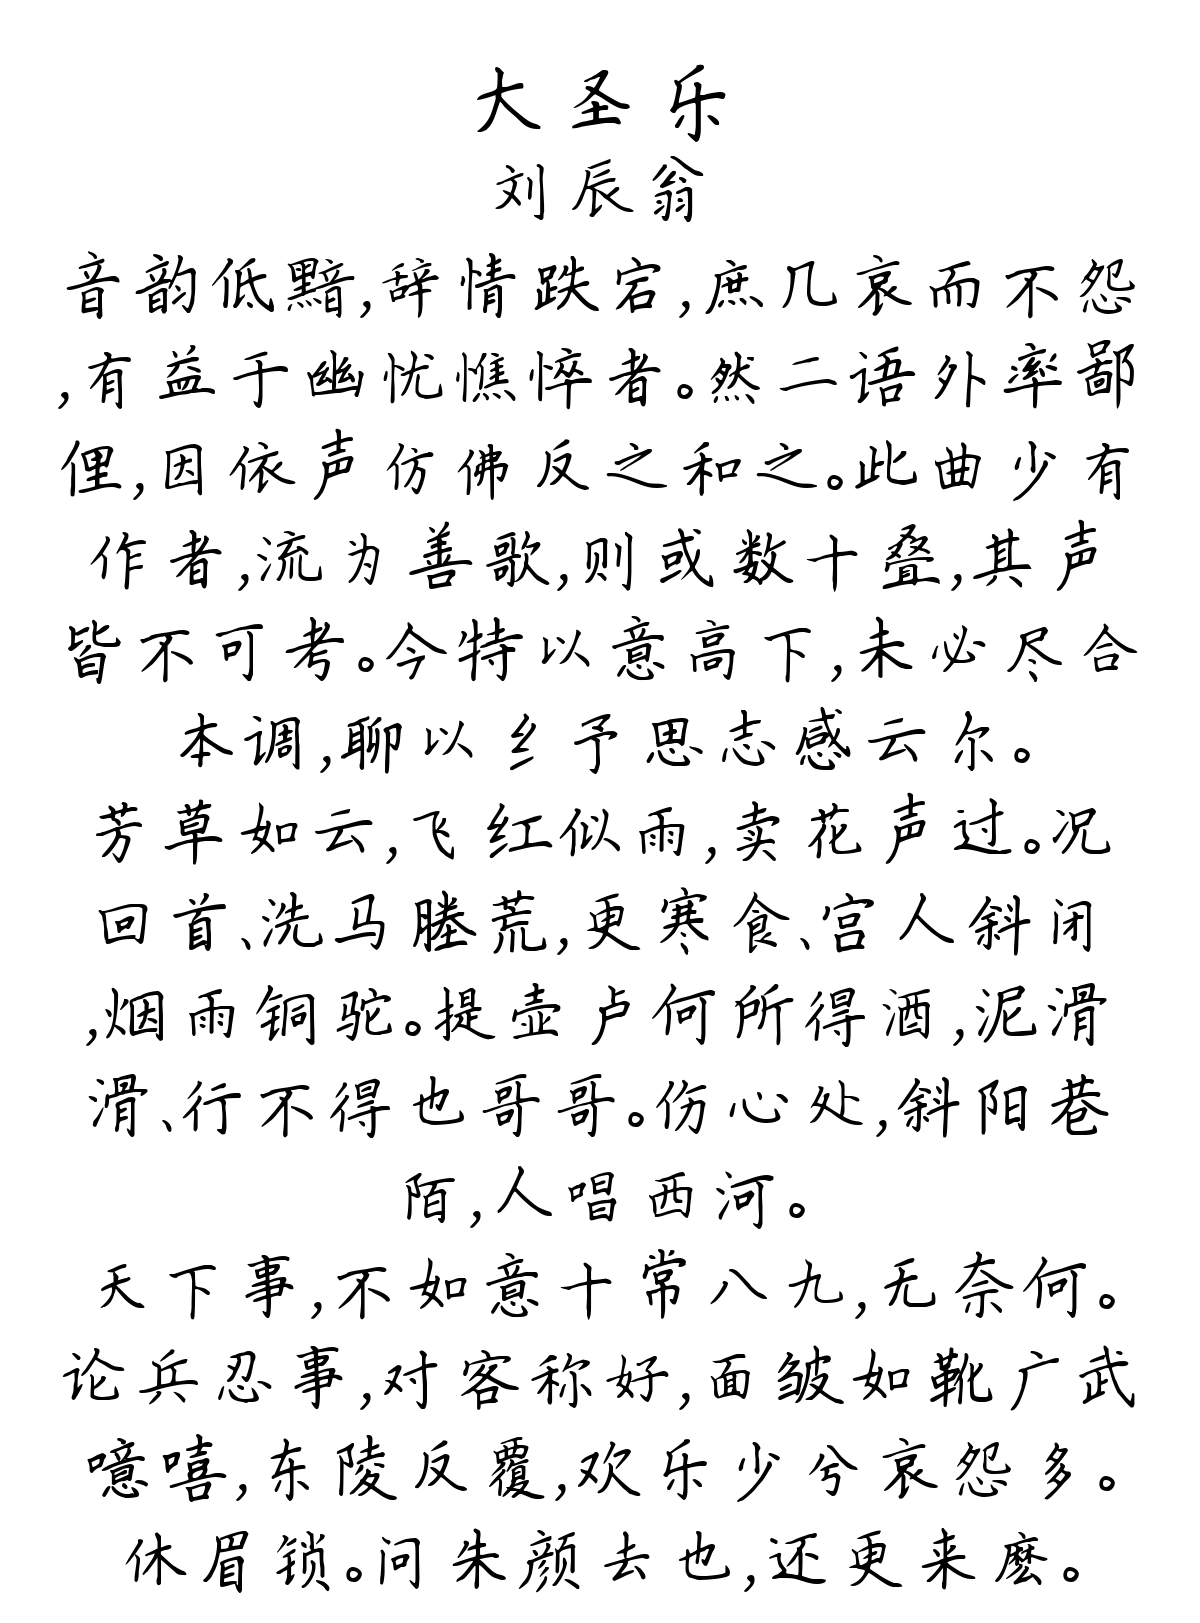 大圣乐
刘辰翁
音韵低黯,辞情跌宕,庶几哀而不怨
,有益于幽忧憔悴者。然二语外率鄙
俚,因依声仿佛反之和之。此曲少有
作者,流为善歌,则或数十叠,其声
皆不可考。今特以意高下,未必尽合
本调,聊以纟予思志感云尔。
芳草如云,飞红似雨,卖花声过。况
回首、洗马塍荒,更寒食、宫人斜闭
,烟雨铜驼。提壶卢何所得酒,泥滑
滑、行不得也哥哥。伤心处,斜阳巷
陌,人唱西河。
天下事,不如意十常八九,无奈何。
论兵忍事,对客称好,面皱如靴广武
噫嘻,东陵反覆,欢乐少兮哀怨多。
休眉锁。问朱颜去也,还更来麽。